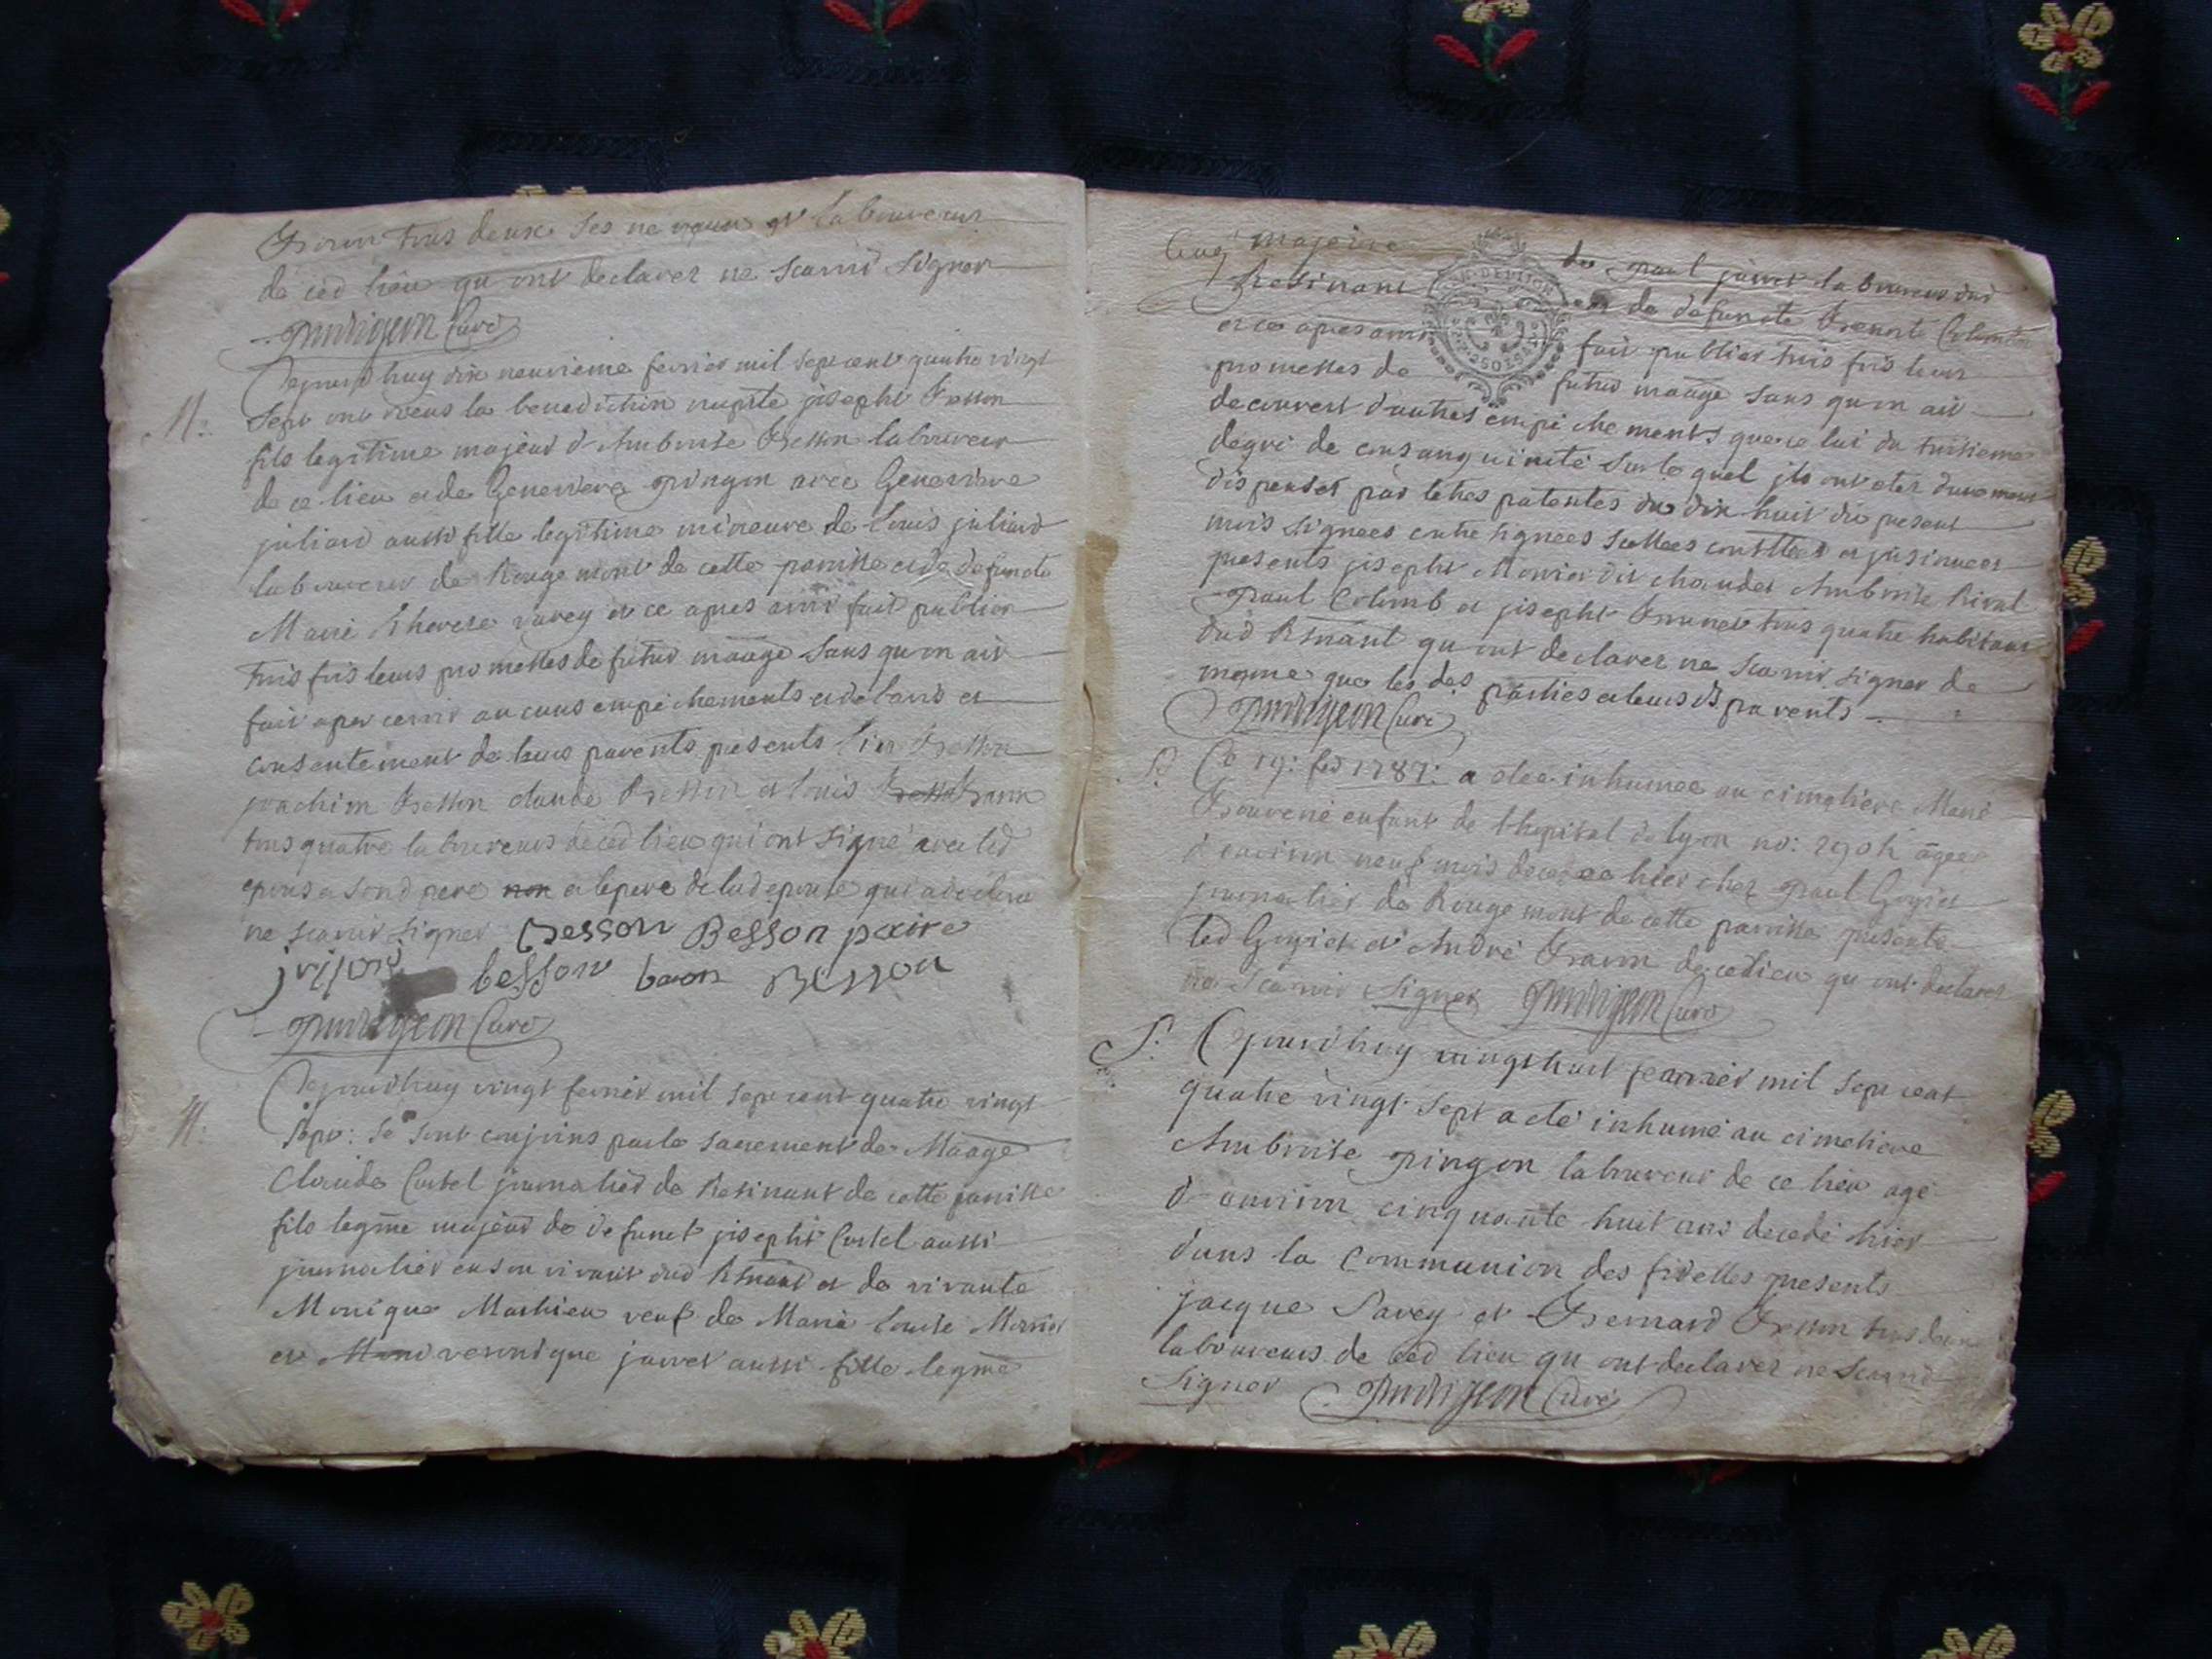 tous deux ses neveux et laboureurs
de ced lieu qu ont declarer ne scavoir signer
Curé
M:
Cejourdhuy dix neuvieme fevrier mil sept cent quatre vingt
sept ont reçus la benediction nuptle joseph Besson
fils legitime majeur d'Ambroise Besson laboureur
de ce lieu et de Genevieve pingon avec Genevieve
juliard aussi fille legitime mineure de Louis juliard
laboureur de Rougemont de cette paroisse et de defuncte
Marie Therese varey et ce apres avoir fait publier
trois fois leurs promesses de futur mãage sans qu on aie
fait apercevoir aucuns empechements et de lavis et
consentement de leurs parents presents Besson
joachim Besson claude Besson et louis Baron
tous quatre laboureurs de ced lieu qui ont signé avec led
epoux sond pere non et le pere de lad epouse qui a declaré
ne scavoir signer Besson Besson paire
besson baron Besson
Curé
M:
Cejourdhuy vingt fevrier mil sept cent quatre vingt
sept: se sont conjoins par le sacrement de Mãage
Claude Costel journalier de Resinant de cette paroisse
fils legme majeur de defunct joseph Costel aussi
journalier en son vivant dud Resinant et de vivante
Monique Mathieu veuf de Marie Louise Monier
et veronique jouvet aussi fille legme
majeure de paul jouvet laboureur dud
Resinant et de defuncte
et ce apres avoir fait publier trois fois leurs
promesses de futur mãage sans qu on aie
decouvert d'autres empechements que celui du troisieme
degré de consanguinité sur le quel ils ont eter duement
dispenser par lettres patentes du dix huit du present
mois signees contre signees scellees controllees et insinuees
presents joseph Monier dit chaudet Ambroise Rival
paul Colomb et joseph Brunet tous quatre habitans
dud Resinant qu ont declarer ne scavoir signer de
meme que les des parties et leurs ds parents
Curé
S.
Ce 19: fev 1787: a etee inhumee au cimetiere Marie
enfant de l'hopital de lyon no: agee
d'environ neuf mois decedee hier chez paul
journalier de Rougemont de cette paroisse presents
led et André Baron de ce lieu qu ont declarer
ne scavoir signer Curé
S.
Cejourdhuy vingthuit fevrier mil sept cent
quatre vingt sept a eté inhumé au cimetiere
Ambroise pingon laboureur de ce lieu agé
d'environ cinquante huit ans decedé hier
dans la communion des fidelles presents
jacque Savey et Bernard Besson tous deux
laboureurs de ced lieu qu ont declarer ne scavoir
signer Curé